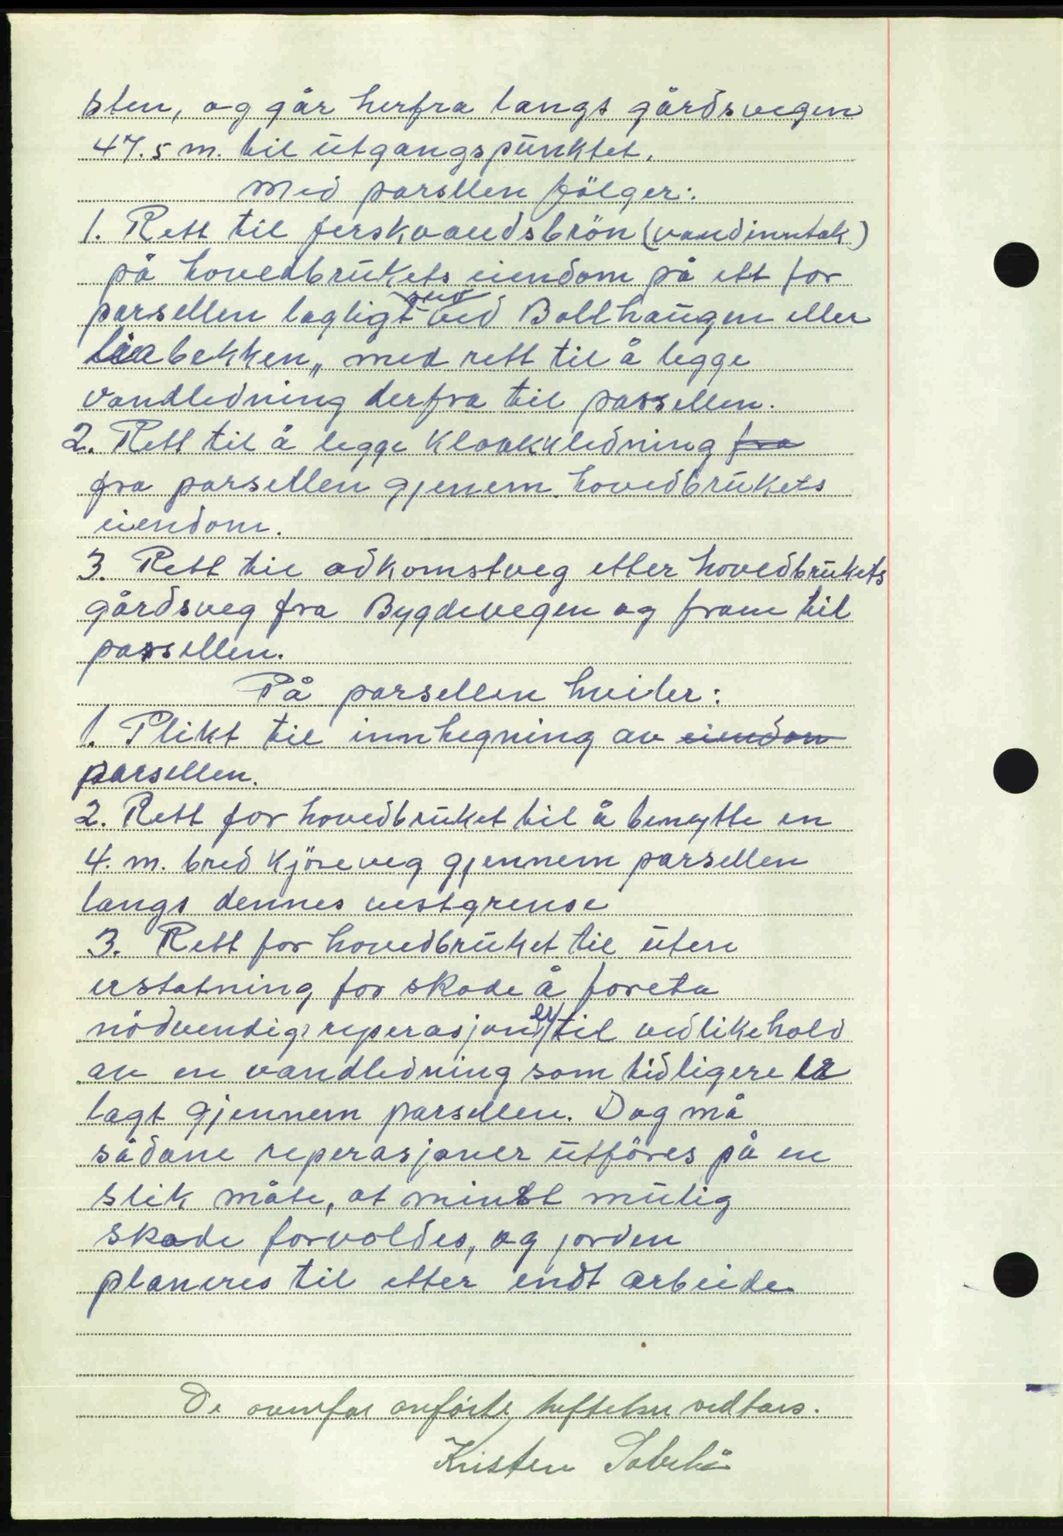 sten, og går herfra langs gårdsvegen
47.5 m. til utgangspunktet.
Med parsellen følger:
1. Rett til ferskvandsbrön (vandinntak)
på hovedbrukets eiendom på ett for
parsellen lagligt sted ved Bollhaugen eller
"Liabekken" med rett til å legge
vandledning derfra til parsellen.
2. Rett til å legge kloakkledning fra
fra parsellen gjenem hovedbrukets
eiendom.
3. Rett til adkomstveg etter hovedbrukets
gårdsveg fra Bygdevegen og fram til
parsellen.
På parsellen hviler:
1. Plikt til innhegning av eiendom
parsellen.
2. Rett for hovedbruket til å benytte en
4. m. bred kjöreveg gjennem parsellen
langs dennes vestgrense
3. Rett for hovedbruket til uten
erstatning for skade å foreta
nödvendige reperasjoner til vedlikehold
av en vandledning som tidligere er
lagt gjennem parsellen. Dog må
sådane reperasjoner utföres på en
slik måte, at minst mulig
skade forvoldes, og jorden
planeres til etter endt arbeide
De ovenfor anförte heftelser vedtaes.
Kristen